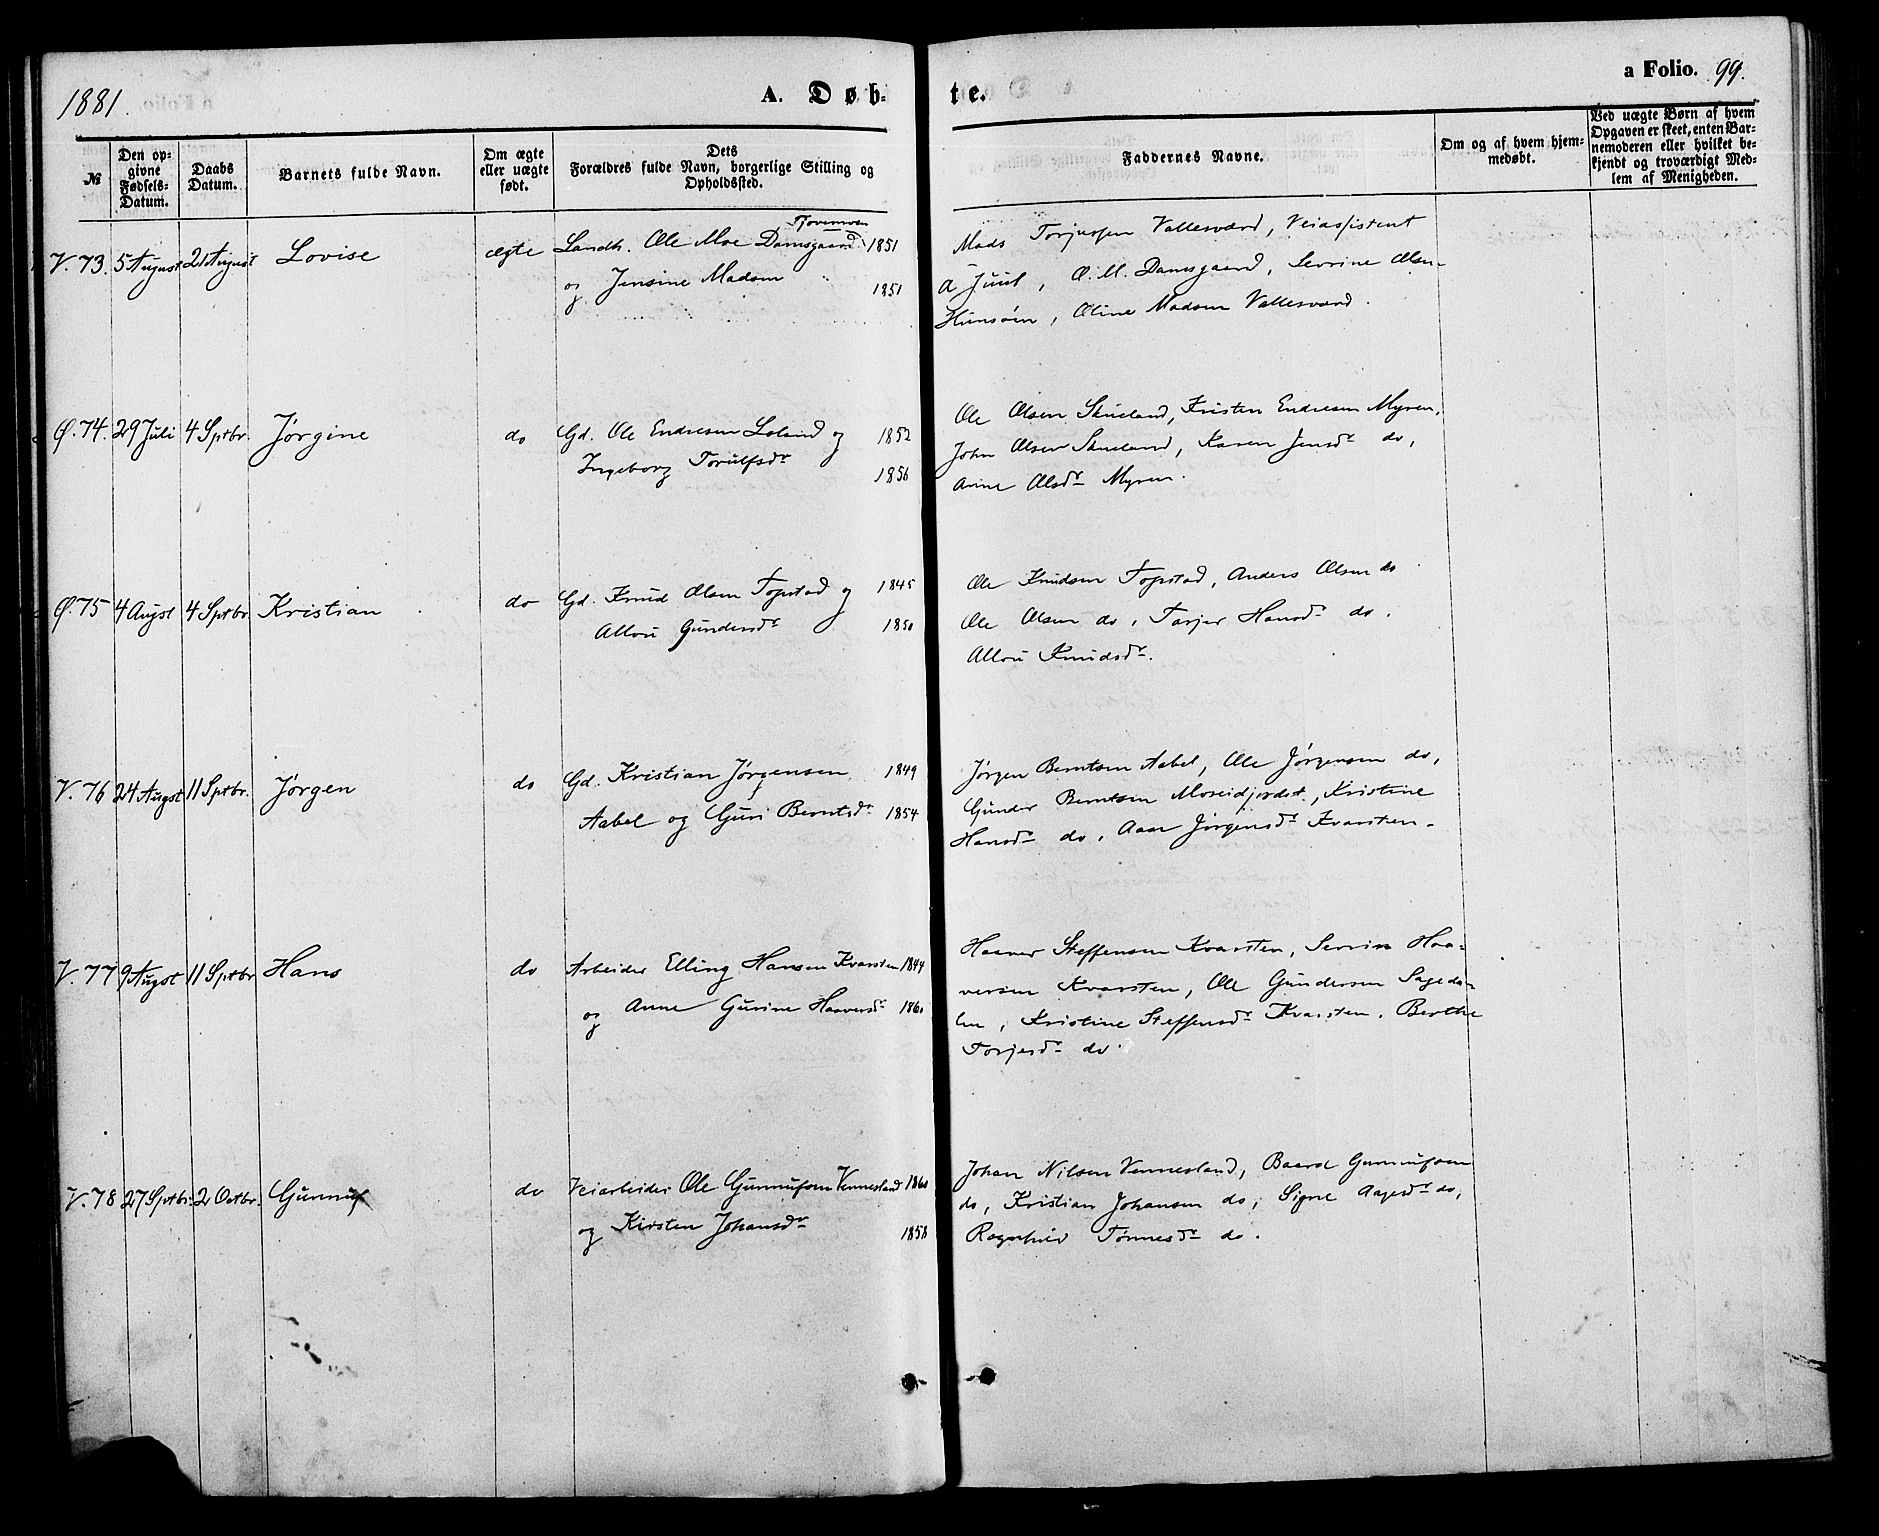 1881.
A. Døb-
te.
a Folio. 99.
№
Den op-
givne
Fødsels-
Datum.
Daabs
Datum.
Barnets fulde Navn.
Om ægte
eller uægte
født.
Dets
Forældres fulde Navn, borgerlige Stilling og
Opholdssted.
Faddernes Navne.
Om og af hvem hjem-
medøbt.
Ved uægte Børn af hvem
Opgaven er skeet, enten Bar-
nemoderen eller hvilket be-
kjendt og troværdigt Med-
lem af Menigheden.
V. 73. 5 August 21 August Lovise ægte Landh. Ole Moe Damsgaard 1851
og Jensine Madsen 1851
Mads Torjussen Vallesværd, Veiassistent
A Juul, O. M. Damsgaard, Sevrine Olsen
Hunsøen, Oline Madsen Vallesværd.
Ø. 74. 29 Juli 4 Sptbr. Jørgine do Gd. Ole Endresen Loland og 1852
Ingeborg Torulfsdr 1856
Ole Olsen Skueland, Kristen Endresen Myren,
John Olsen Skueland, Karen Jensdr do,
Anne Olsdr Myren.
Ø. 75 4 Augst 4 Sptbr. Kristian do Gd. Knud Olsen Topstad og 1845
Allou Gundersdr 1850
Ole Knudsen Topstad, Anders Olsen do
Ole Olsen do, Torjer Hansdr do.
Allou Knudsdr.
V. 76 24 Augst 11 Sptbr. Jørgen do Gd. Kristian Jørgensen 1849
Aabel og Guri Berntsdr 1854
Jørgen Berntsen Aabel, Ole Jørgensen do,
Gunder Berntsen Moseidjordet, Kristine
Hansdr do, Aase Jørgensdr Kvarsten.
V. 77 9 Augst 11 Sptbr Hans do Arbeider Elling Hansen Kvarsten 1844
og Anne Gurine Haaversdr 1860
Haaver Steffensen Kvarsten, Sevrin Haa-
versen Kvarsten, Ole Gundersen Sageda-
len, Kristine Steffensdr Kvarsten. Berthe
Torjesdr do.
V. 78 27 Sptbr. 2 Octbr. Gunnuf do Veiarbeider Ole Gunnufsen Vennesland 1860
og Kirsten Johansdr 1858
Johan Nilsen Vennesland, Baard Gunnufsen
do, Kristian Johansen do, Signe Aagesdr do,
Ragnhild Tønnesdr do.